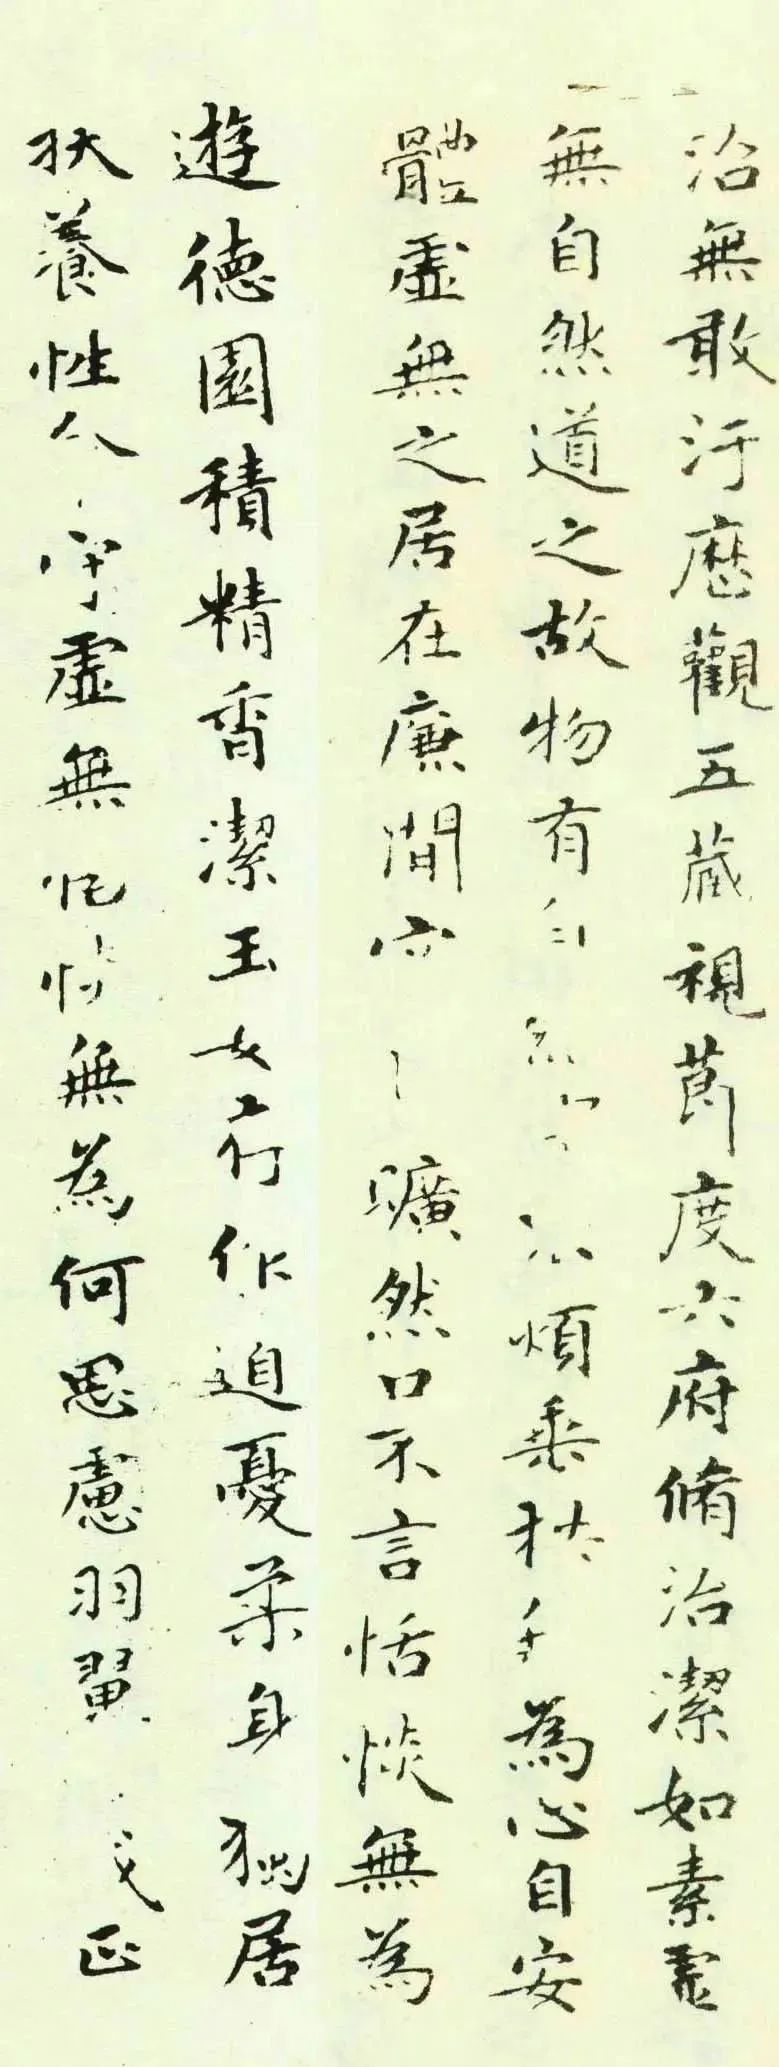 治無敢汙歷觀五藏視節度六府脩治潔如素虛
無自然道之故物有自 煩垂拱 為心自安
體虛無之居在廉間 曠然口不言恬惔無為
遊德園積精香潔玉女存作道憂柔身獨居
扶養性命守虛無恬惔無為何思慮羽翼 成正